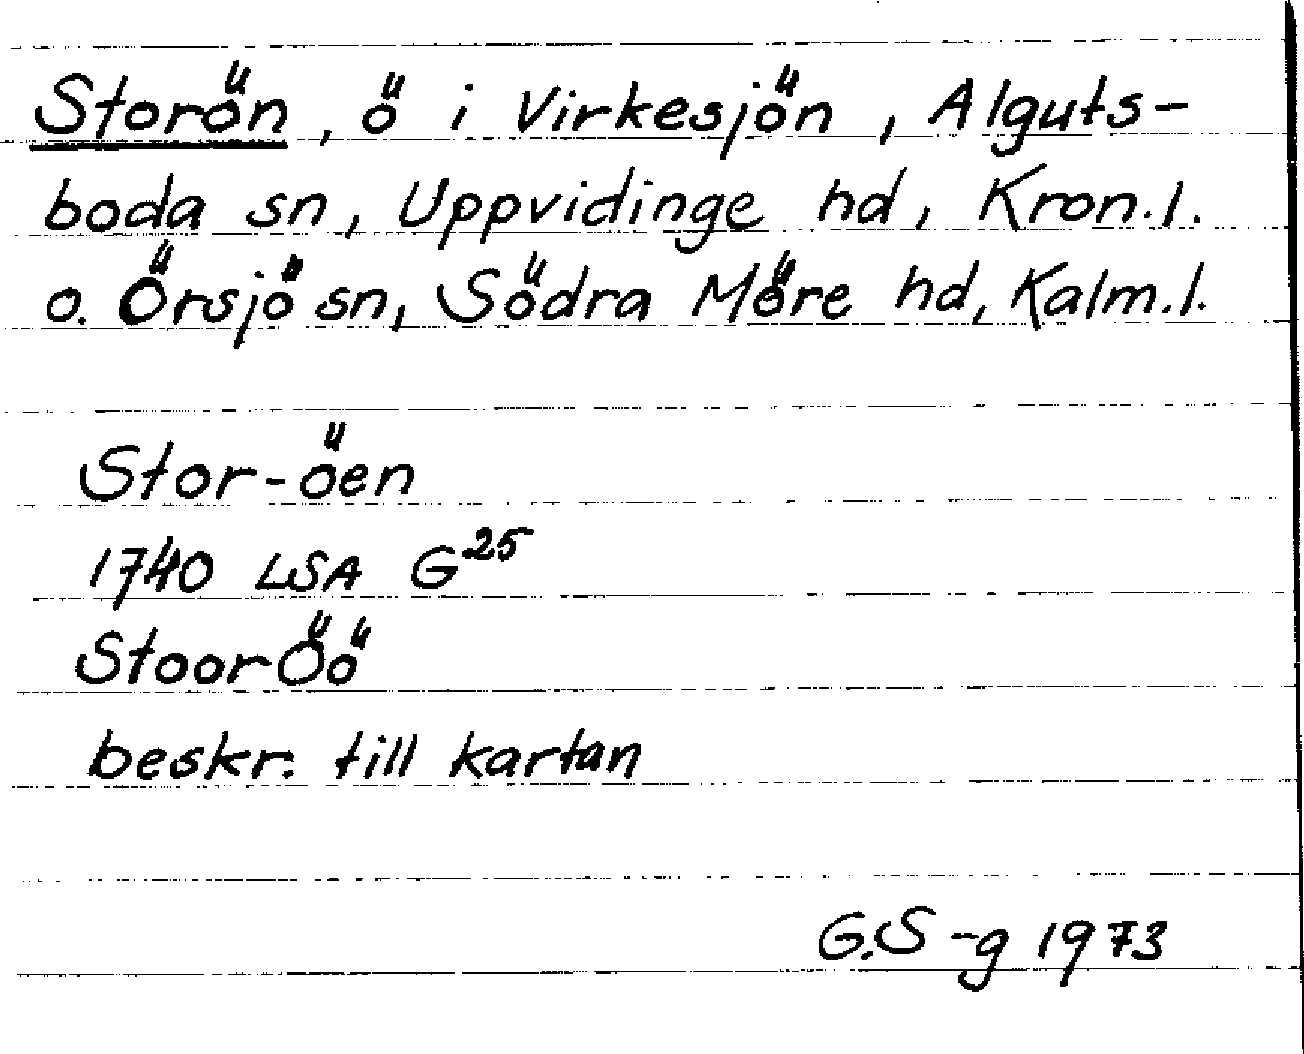 Storön, ö i Virkesjön, Alguts-
boda sn, Uppvidinge hd, Kron.l.
o. Örsjö sn, Södra Möre hd, Kalm.l.
Stor-öen
1740 LSA G²⁵
Stoor Öö
beskr. till kartan
G.S-g 1973